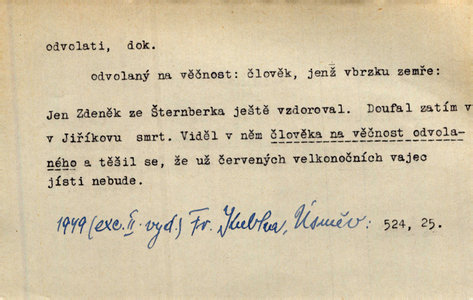 odvolati, dok.
odvolaný na věčnost: člověk, jenž vbrzku zemře:
Jen Zdeněk ze Šternberka ještě vzdoroval. Doufal zatím v
v Jiříkovu smrt. Viděl v něm člověka na věčnost odvola-
ného a těšil se, že už červených velkonočních vajec
jísti nebude.
1949 (exc. II. vyd.) Fr. Kubka, Úsměv: 524, 25.